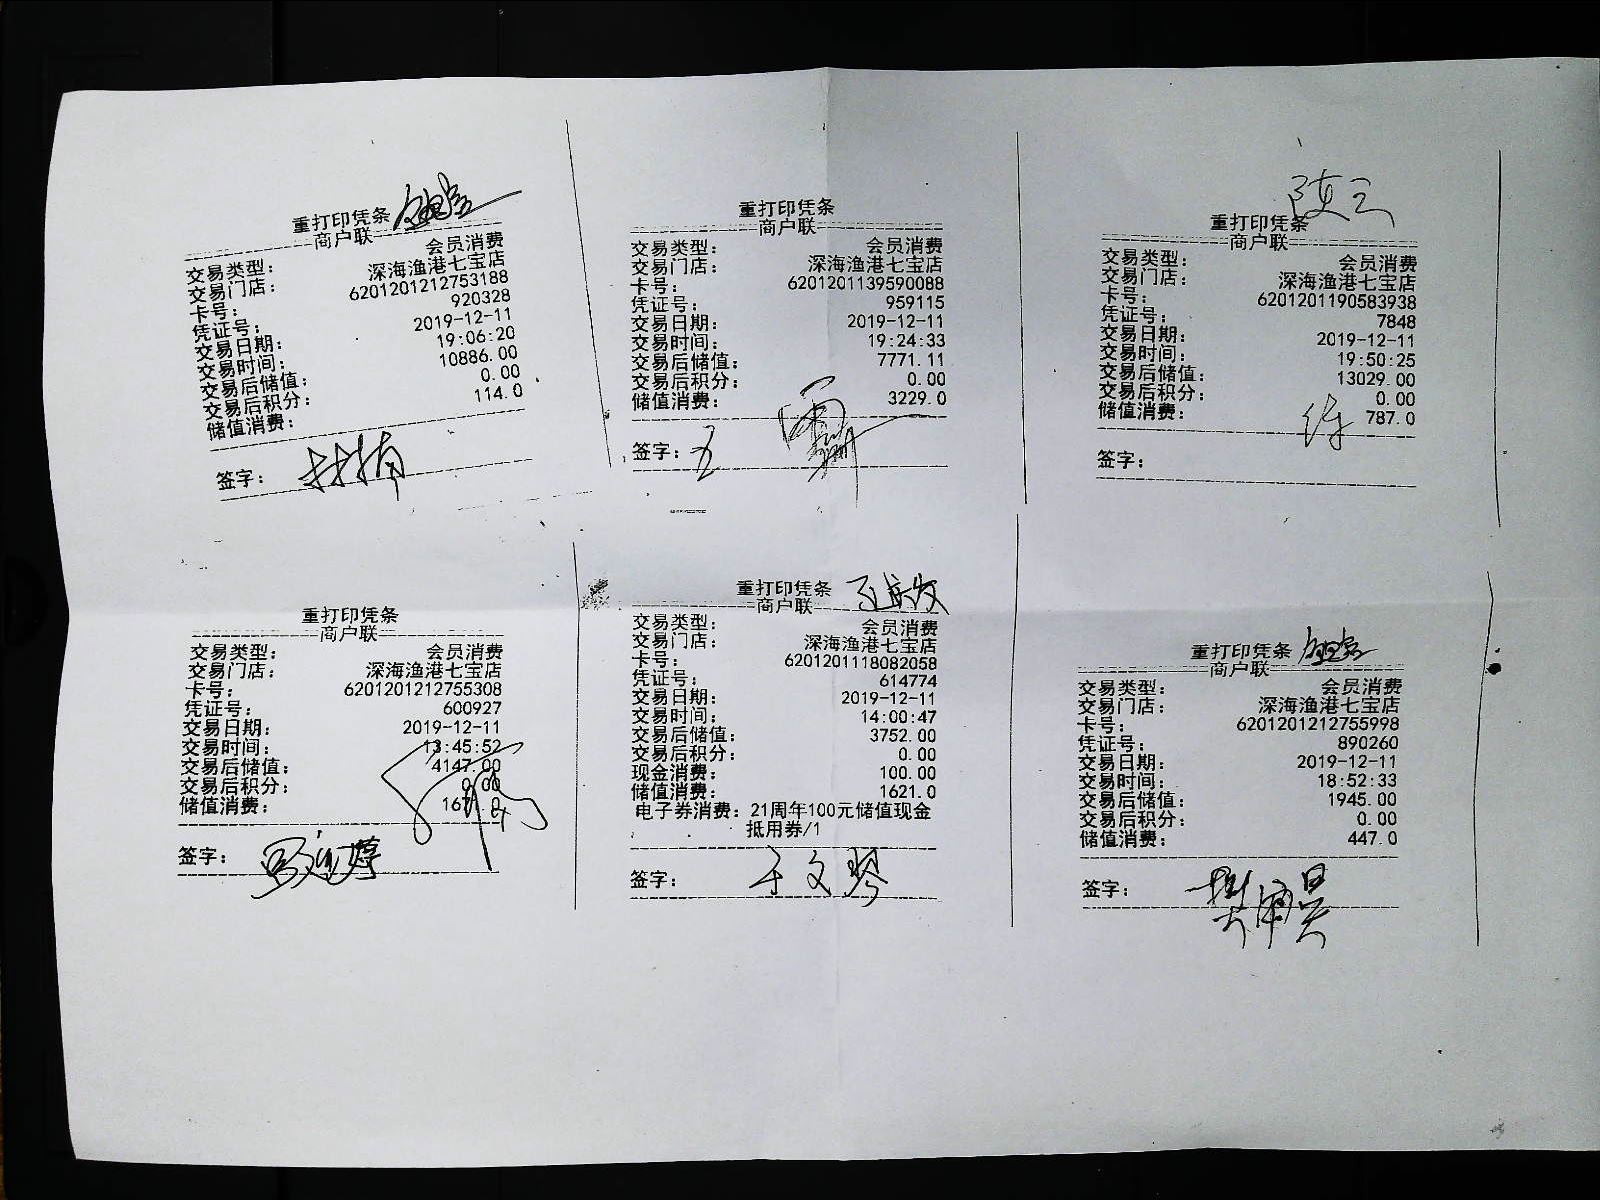 重打印凭条
商户联
交易类型： 会员消费
交易门店： 深海渔港七宝店
卡号： 6201201212753188
凭证号： 920328
交易日期： 2019-12-11
交易时间： 19:06:20
交易后储值： 10886.00
交易后积分： 0.00
储值消费： 114.0
签字：
重打印凭条
商户联
交易类型： 会员消费
交易门店： 深海渔港七宝店
卡号： 6201201139590088
凭证号： 959115
交易日期： 2019-12-11
交易时间： 19:24:33
交易后储值： 7771.11
交易后积分： 0.00
储值消费： 3229.0
签字：
重打印凭条
商户联
交易类型： 会员消费
交易门店： 深海渔港七宝店
卡号： 6201201190583938
凭证号： 7848
交易日期： 2019-12-11
交易时间： 19:50:25
交易后储值： 13029.00
交易后积分： 0.00
储值消费： 787.0
签字：
重打印凭条
商户联
交易类型： 会员消费
交易门店： 深海渔港七宝店
卡号： 6201201212755308
凭证号： 600927
交易日期： 2019-12-11
交易时间： 13:45:52
交易后储值： 4147.00
交易后积分： 0.00
储值消费：
签字：
重打印凭条
商户联
交易类型： 会员消费
交易门店： 深海渔港七宝店
卡号： 6201201118082058
凭证号： 614774
交易日期： 2019-12-11
交易时间： 14:00:47
交易后储值： 3752.00
交易后积分： 0.00
现金消费： 100.00
储值消费： 1621.0
电子券消费：21周年100元储值现金
抵用券/1
签字： 于文琴
重打印凭条
商户联
交易类型： 会员消费
交易门店： 深海渔港七宝店
卡号： 6201201212755998
凭证号： 890260
交易日期： 2019-12-11
交易时间： 18:52:33
交易后储值： 1945.00
交易后积分： 0.00
储值消费： 447.0
签字：